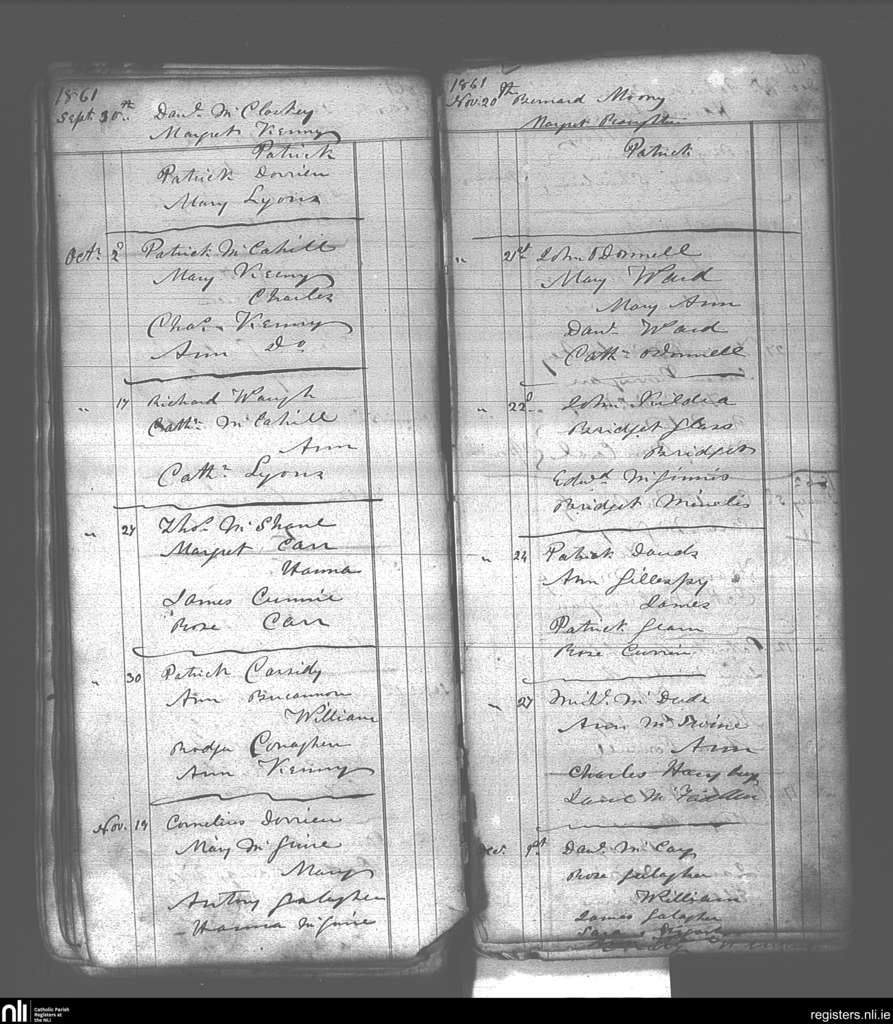 1861
Sept. 30th Danl. McCloskey
Margret Kenny
Patrick
Patrick Dorrien
Mary Lyons
Octr. 2d Patrick McCahill
Mary Kenny
Charles
Chas. Kenny
Ann Do
" 17 Richard Waugh
Cathn. McCahill
Ann
Cathn. Lyons
" 27 Thos. McShane
Margret Carr
Hanna
James
Rose Carr
" 30 Patrick Cassidy
Ann Bucannon
William
Rodger Conaghen
Ann Kenny
Nov. 19 Cornelius Dorrien
Mary McGuire
Mary
Antony Galagher
Hanna McGuire
1861
Nov. 20th Bernard Moony
Margret
Patrick
" 21st John O'Donnell
Mary Ward
Mary Ann
Danl. Ward
Cathn. O'Donnell
" 22d John Kildea
Bridget Glass
Bridget
Edwd. McGinnis
Bridget
" 24 Patrick
Ann Gillespy
James
Patrick
Rose Currien
" 27 Michl. McDade
Ann
Ann
Charles
McFadden
1st Danl. McCay
Rose Galagher
William
James Galagher
nli
Catholic Parish
Registers at
the NLI
registers.nli.ie